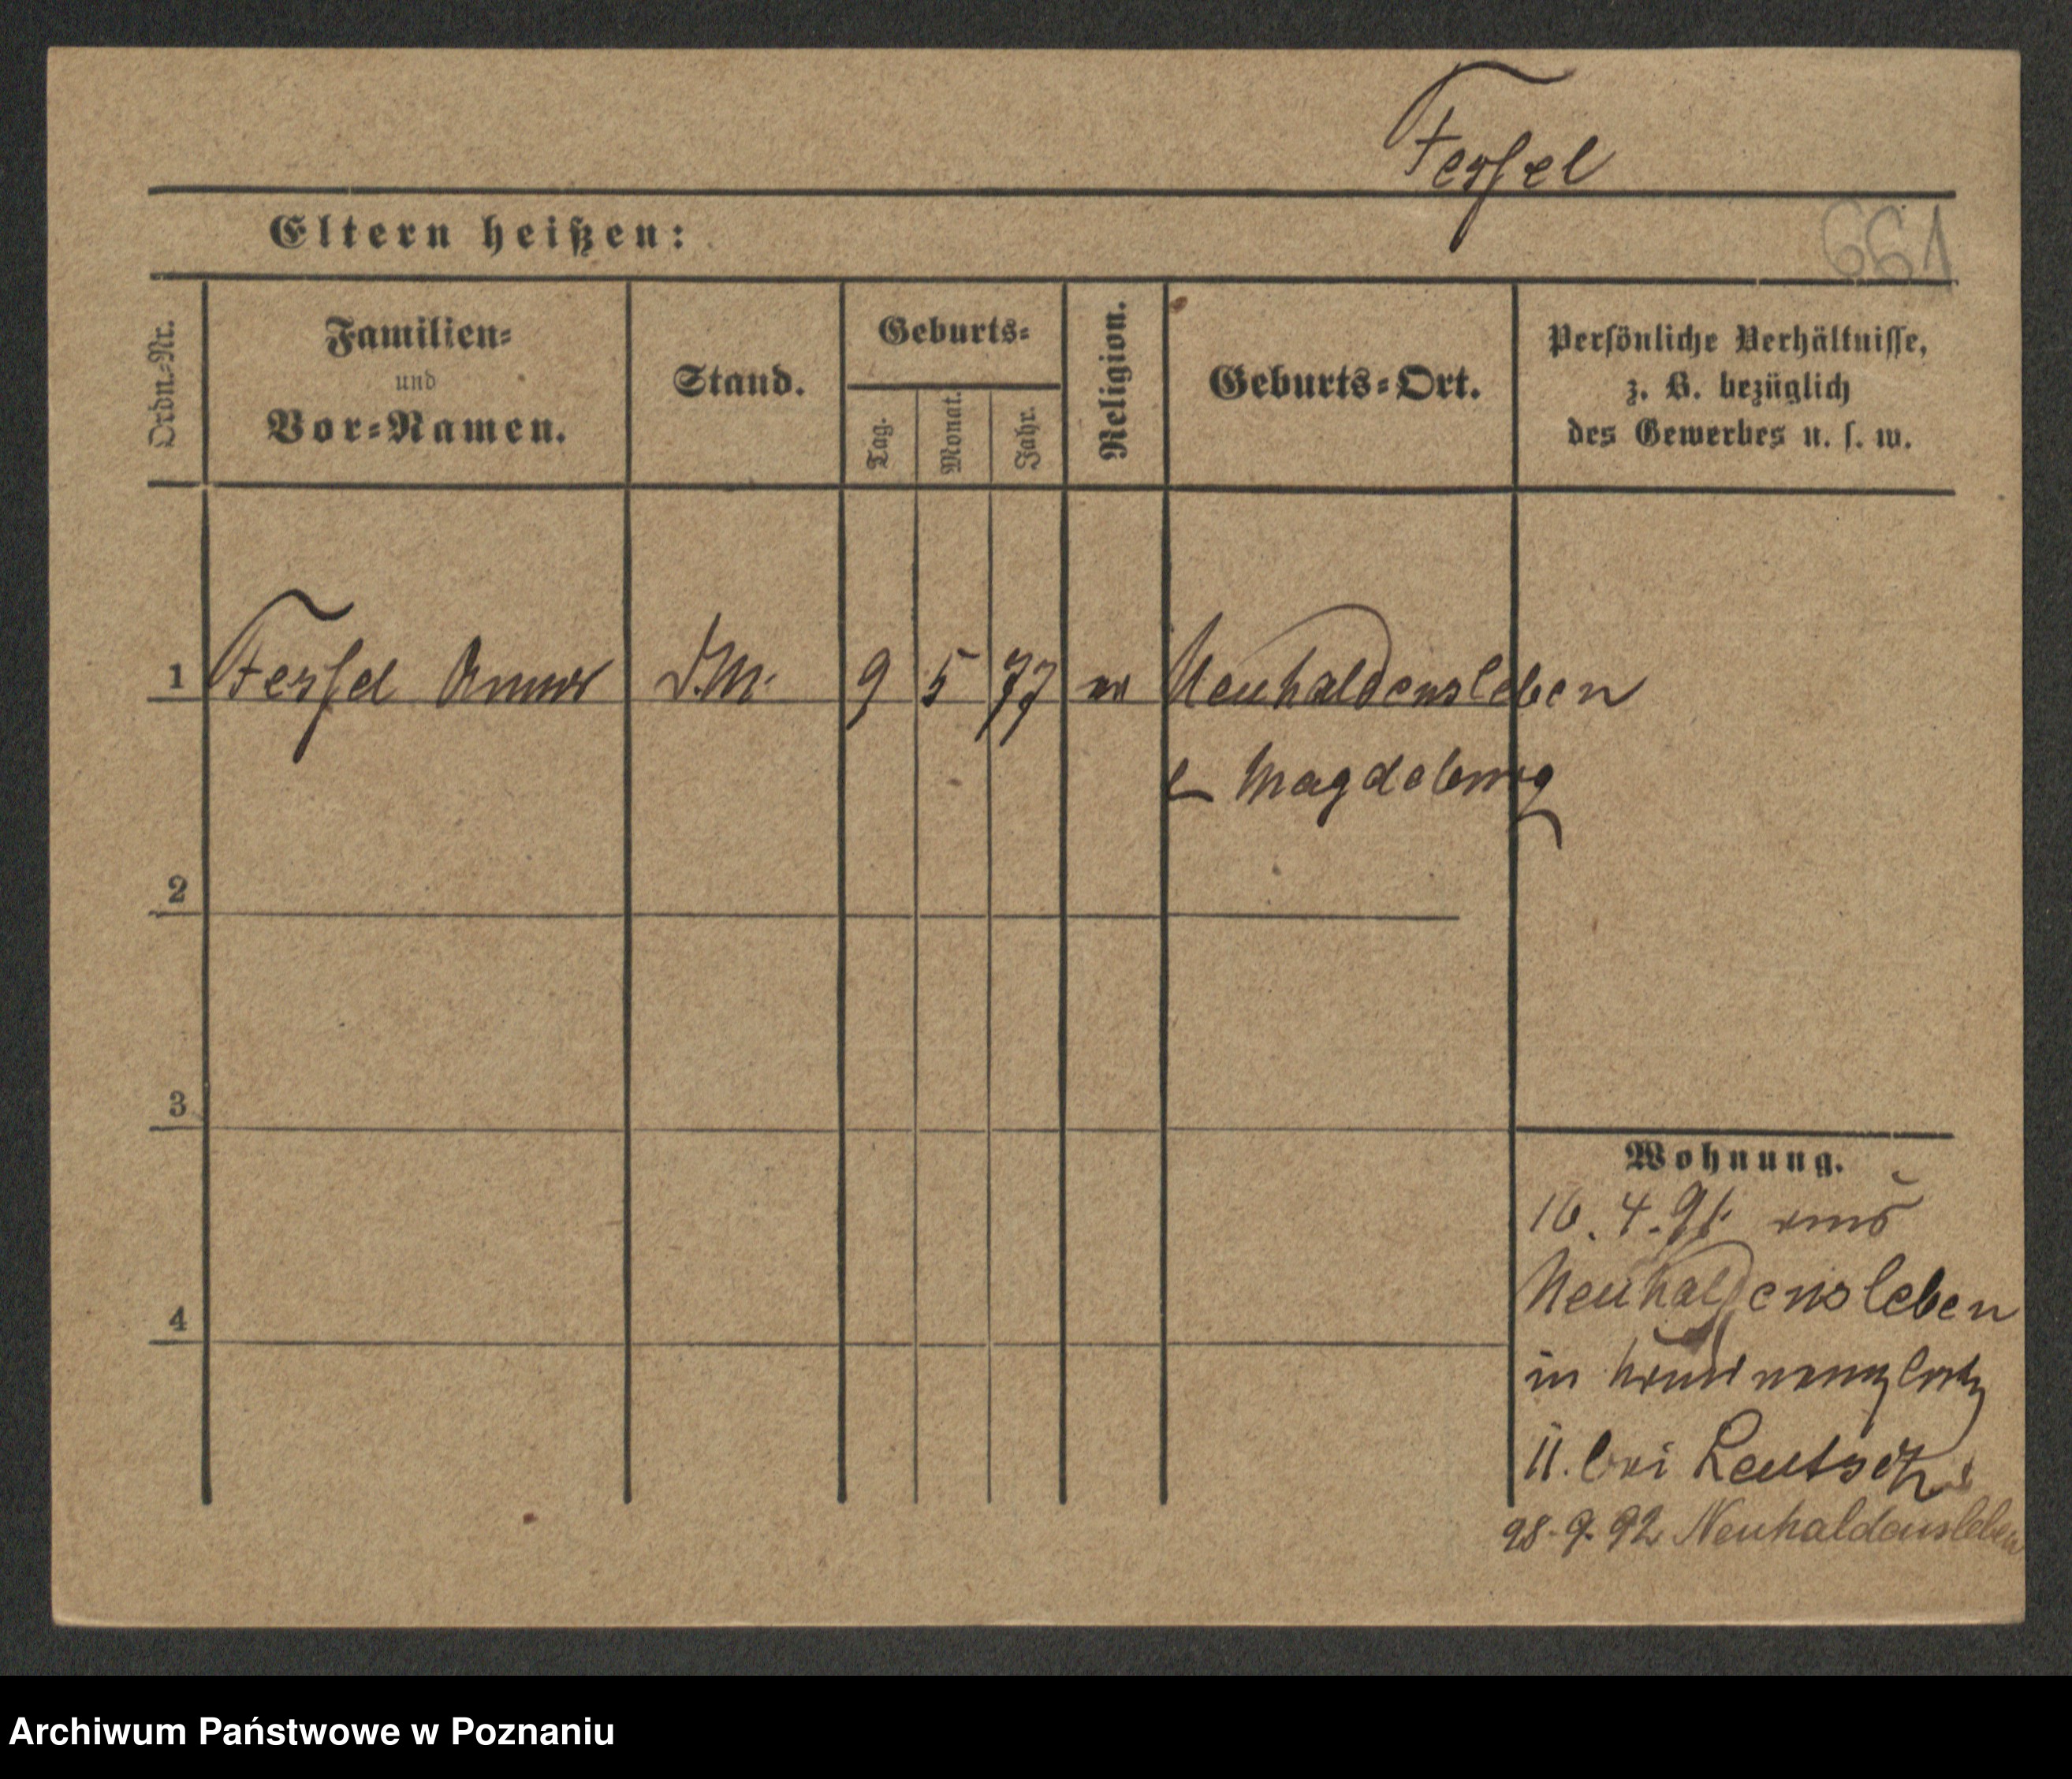 Fessel
661
Eltern heißen:
Ordn.-Nr.
Familien-
und
Vor-Namen.
Stand.
Geburts-
Tag.
Monat.
Jahr.
Religion.
Geburts-Ort.
Persönliche Verhältnisse,
z. B. bezüglich
des Gewerbes u. s. w.
1 Fessel Anna D.M. 9 5 77 ev Neuhaldensleben
Magdeburg
2
3
4
Wohnung.
16. 4. 91. aus
Neuhaldensleben
in
11. bei Leutsch
28-9-92 Neuhaldensleben
Archiwum Państwowe w Poznaniu